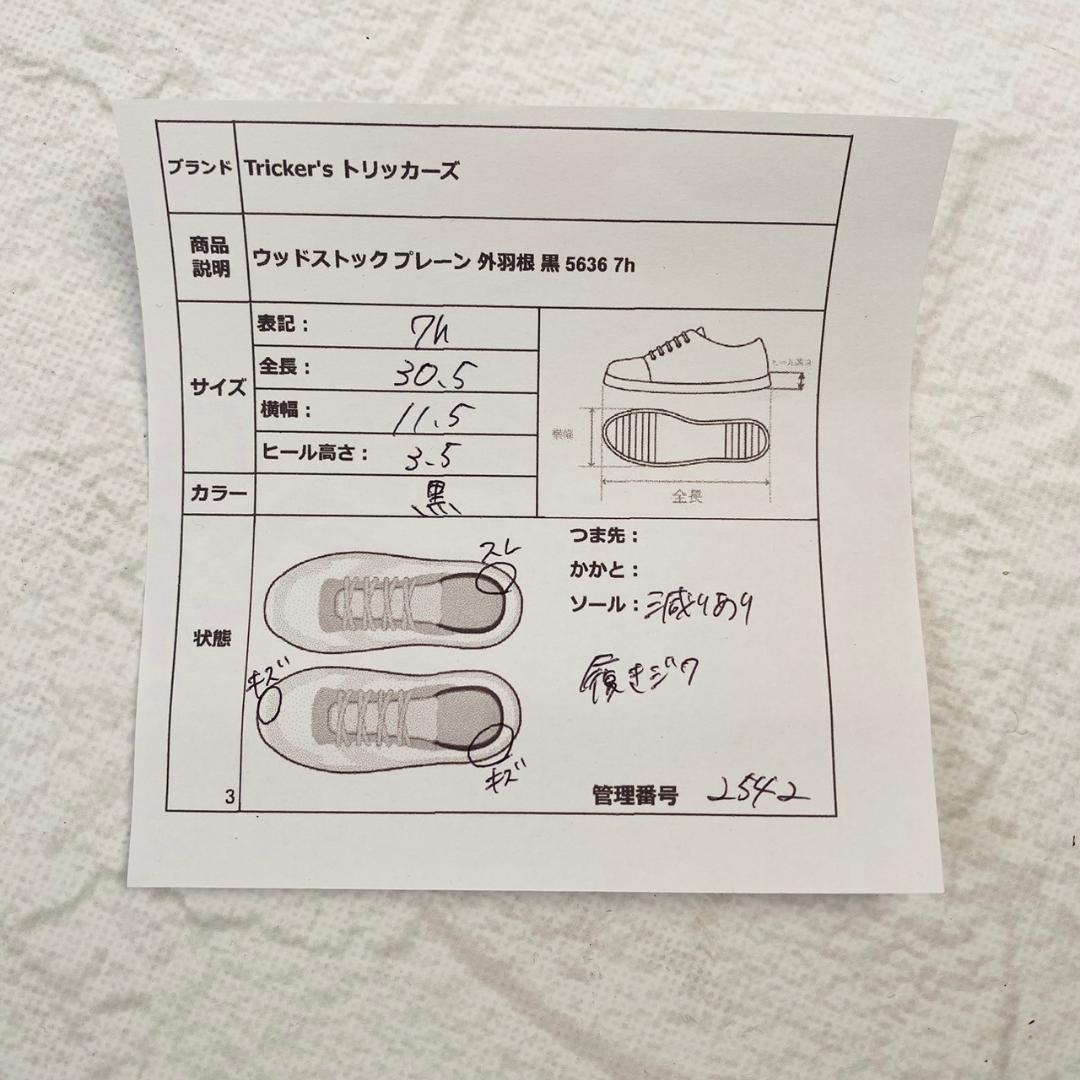 ブランド Tricker's トリッカーズ
商品説明 ウッドストック プレーン 外羽根 黒 5636 7h
サイズ
表記： 7h
全長： 30.5
横幅： 11.5
ヒール高さ： 3.5
ヒール高さ
横幅
全長
カラー 黒
状態
スレ
キズ
キズ
つま先：
かかと：
ソール：減りあり
履きジワ
3
管理番号 2542